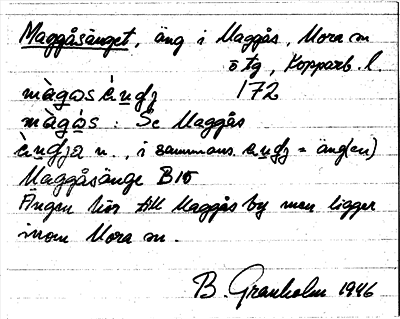 Maggåsänget, äng i Maggås, Mora sn
ö tg, Kopparb. l.
màgɷs èŋdʒ 172
màgɷ́s : Se Maggås
èŋdʒa n., i sammans. eŋdʒ = äng(en)
Maggåsänge B15
Ängen hör till Maggås by men ligger
inom Mora sn.
B. Granholm 1946